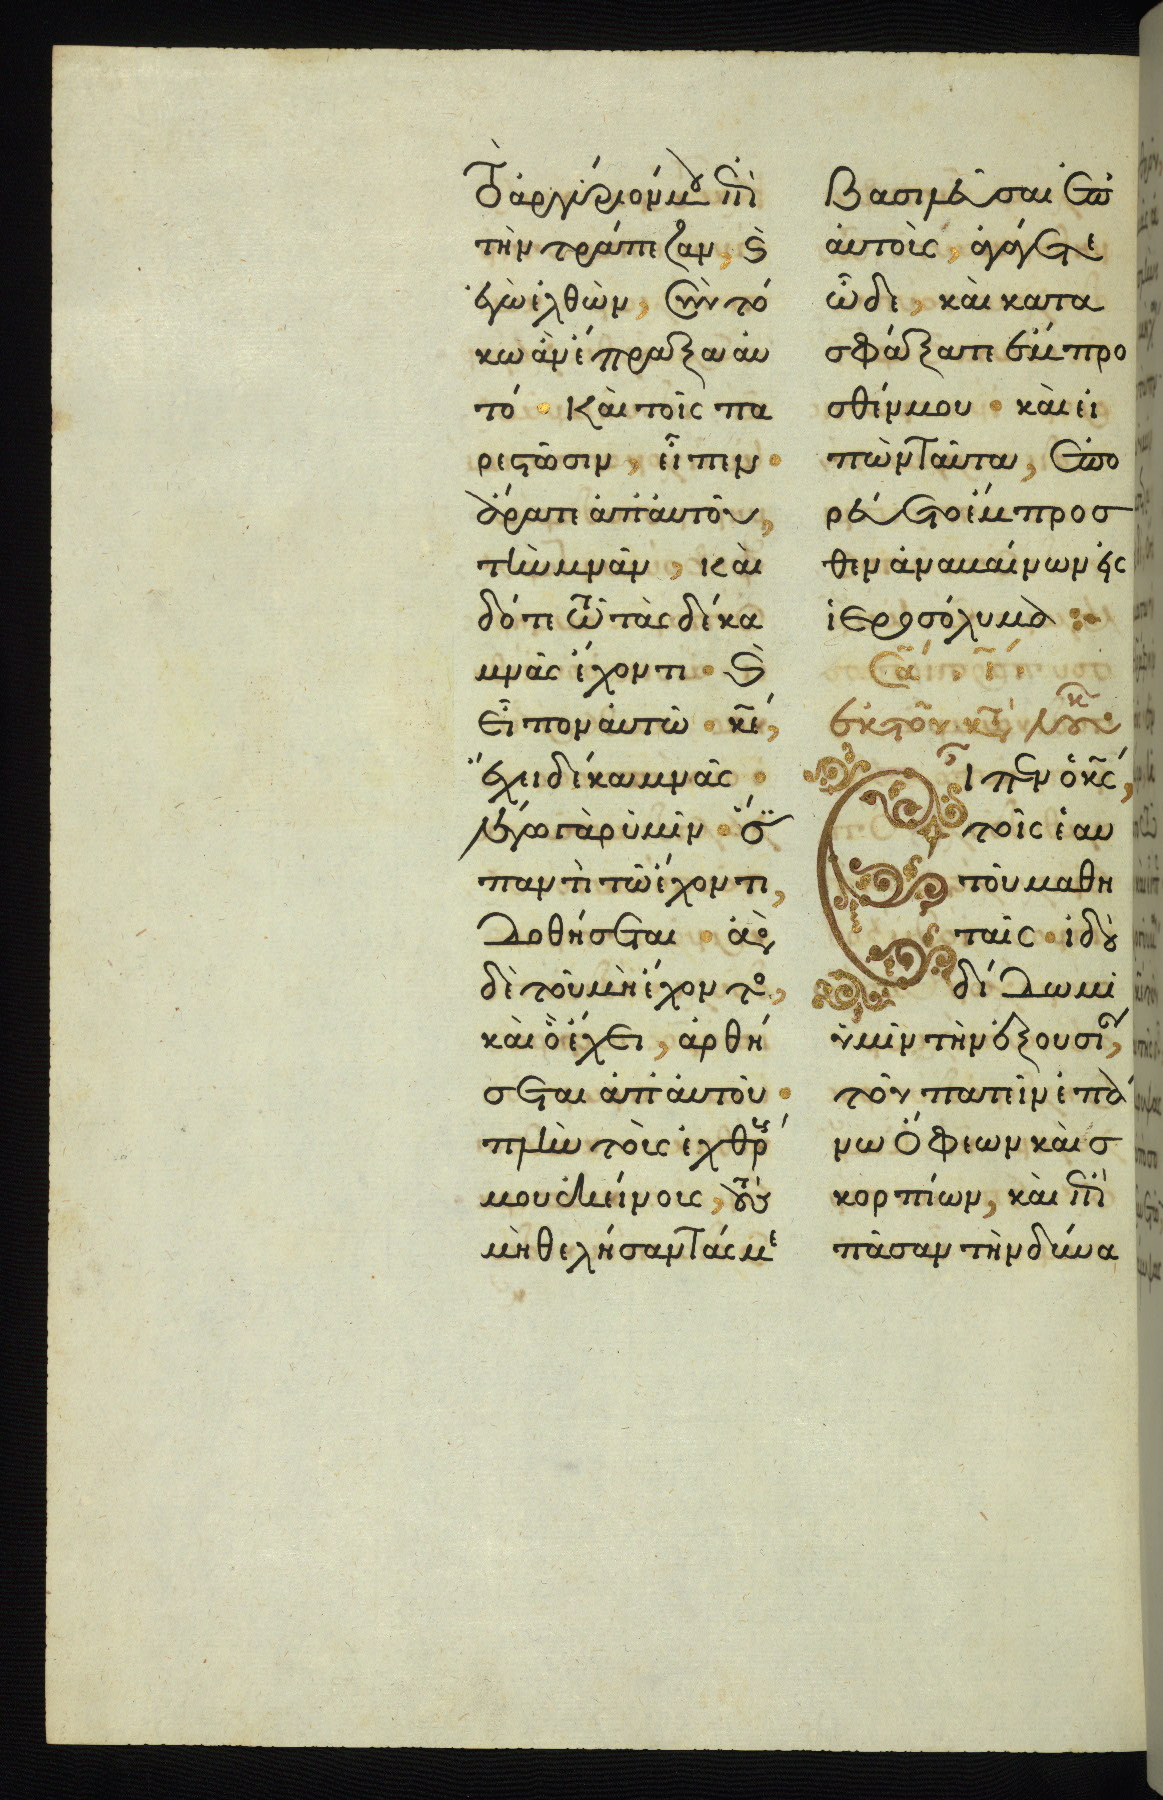 τὸ ἀργύριόν μου ἐπὶ
τὴν τράπεζαν, καὶ
ἐγὼ ἐλθὼν, σὺν τό
κω ἂν ἔπραξα αὐ
τό · Καὶ τοῖς πα
ρεστῶσιν, εἶπεν ·
ἄρατε ἀπ' αὐτοῦ,
τὴν μνᾶν, καὶ
δότε τῶ τὰς δέκα
μνᾶς ἔχοντι · καὶ
εἶπον αὐτῶ · κε,
ἔχει δέκα μνᾶς ·
λέγω γὰρ ὑμῖν · ὅτι
παντὶ τῶ ἔχοντι,
δοθήσεται · ἀπὸ
δὲ τοῦ μὴ ἔχοντος,
καὶ ὃ ἔχει, ἀρθή
σεται ἀπ' αὐτοῦ ·
πλὴν τοὺς ἐχθρούς
μου ἐκείνους, τοὺς
μὴ θελήσαντάς με
Βασιλεῦσαι ἐπ'
αὐτοὺς, ἀγάγετε
ὧδε, καὶ κατα
σφάξατε ἔμπρο
σθέν μου · καὶ εἰ
πὼν ταῦτα, ἐπο
ρεύετο ἔμπροσ
θεν ἀναβαίνων εἰς
ἱεροσόλυμα :·
Σα
ἐκ τοῦ κατὰ Λουκ
Εἶπεν ὁ κς,
τοῖς ἑαυ
τοῦ μαθη
ταῖς · ἰδοὺ
δίδωμι
ὑμῖν τὴν ἐξουσίαν,
τοῦ πατεῖν ἐπά
νω ὄφεων καὶ σ
κορπίων, καὶ ἐπὶ
πᾶσαν τὴν δύνα